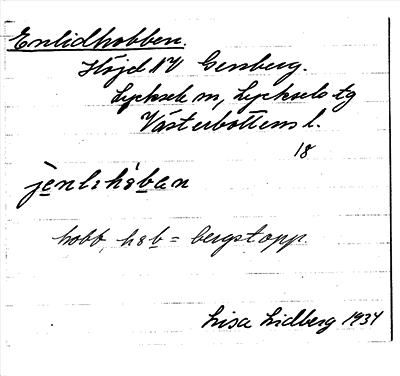 Enlidhobben.
Höjd NV Gensberg.
Lycksele sn, Lycksele tg
Västerbottens l.
18
hobb, = bergstopp.
Lisa Lidberg 1934